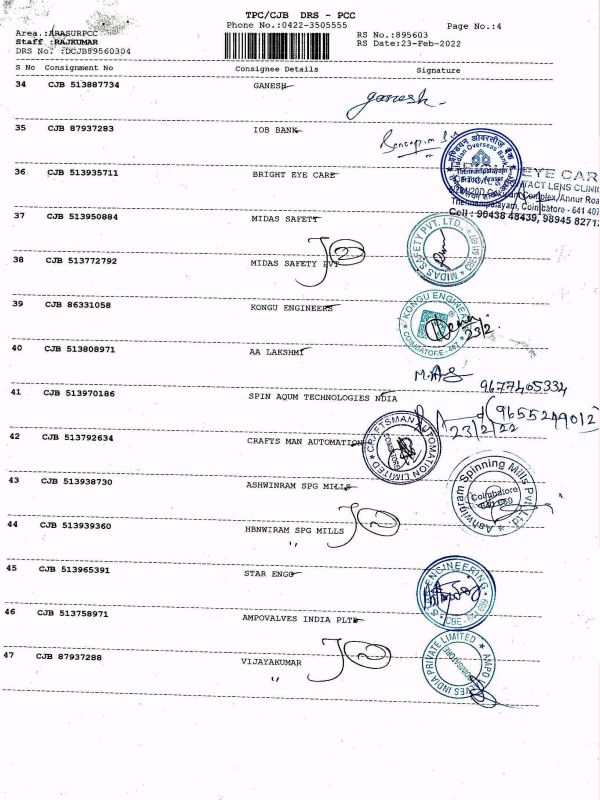 TPC/CJB DRS - PCC
Phone No.:0422-3505555
Page No.:4
Area :ARASURPCC
Staff :RAJKUMAR
DRS No. :DCJB89560304
RS No.:895603
RS Date:23-Feb-2022
S No Consignment No Consignee Details Signature
34 CJB 513887734 GANESH ganesh
35 CJB 87937283 IOB BANK
Indian Overseas Bank
36 CJB 513935711 BRIGHT EYE CARE
EYE CAR
TACT LENS CLINIC
Complex/Annur Roa
Coimbatore - 641 407
Cell : 90438 48439, 98945 8271
37 CJB 513950884 MIDAS SAFETY
MIDAS SAFETY PVT. LTD.
38 CJB 513772792 MIDAS SAFETY PVT
39 CJB 86331058 KONGU ENGINEERS
KONGU ENGINEERS
COIMBATORE
23/2
40 CJB 513808971 AA LAKSHMI
9677405334
41 CJB 513970186 SPIN AQUM TECHNOLOGIES NDIA
(9655249012)
23/2/22
42 CJB 513792634 CRAFTS MAN AUTOMATION
CRAFTSMAN AUTOMATION LIMITED
COIMBATORE
43 CJB 513938730 ASHWINRAM SPG MILLS
Ashwinram Spinning Mills Pvt. Ltd.
Coimbatore
44 CJB 513939360 HBNWIRAM SPG MILLS
"
45 CJB 513965391 STAR ENGG
ENGINEERING
CBE - 641 659
46 CJB 513758971 AMPOVALVES INDIA PLTD
47 CJB 87937288 VIJAYAKUMAR
AMPO VALVES INDIA PRIVATE LIMITED